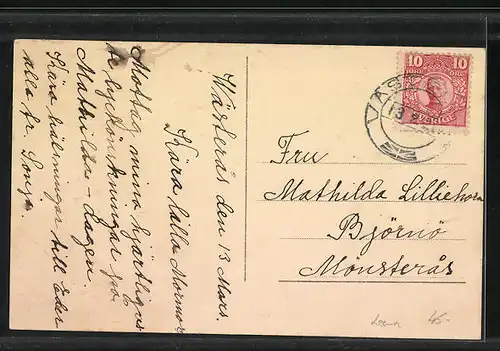 Västerås den 13 Mars.
Kära lilla Mormor
Mottag mina hjärtligas
te lyckönskningar på
Mathilda-dagen
Kära hälsningar till Eder
alla fr. Sonja.
10 10
ÖRE ÖRE
SVERIGE
VÄSTE
13
Fru
Mathilda Lilliehorn
Björnö
Mönsterås
45-